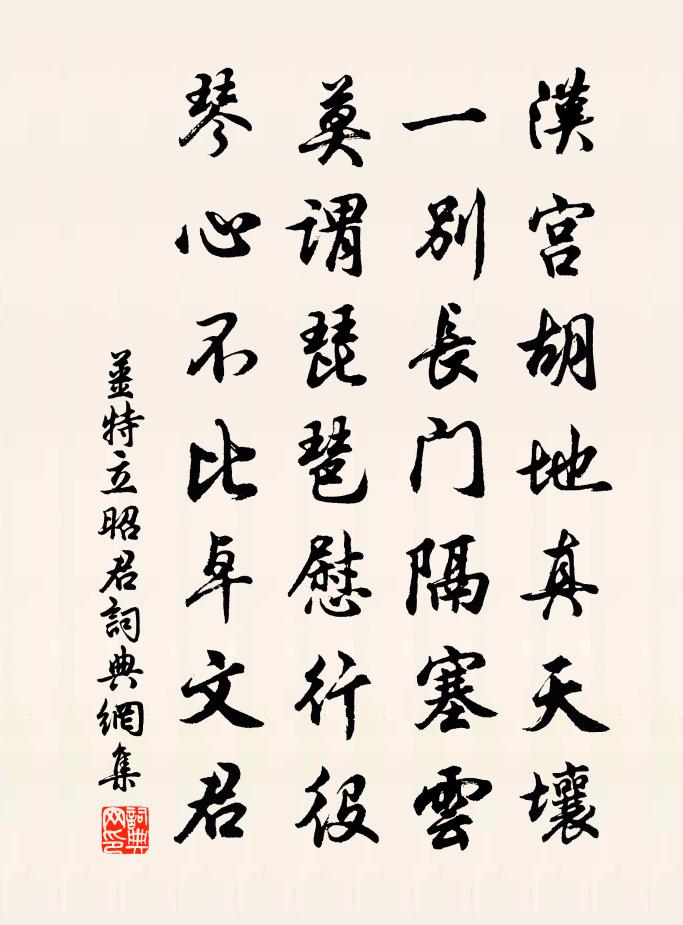 漢宮胡地真天壤
一別長门隔塞雲
莫謂琵琶慰行役
琴心不比卓文君
姜特立昭君詞典網集
詞典网印